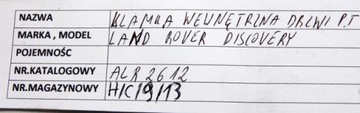 NAZWA KLAMKA WEWNĘTRZNA DRZWI P.T
MARKA , MODEL LAND ROVER DISCOVERY
POJEMNOŚĆ
NR.KATALOGOWY ALR2612
NR.MAGAZYNOWY H/C/9/13